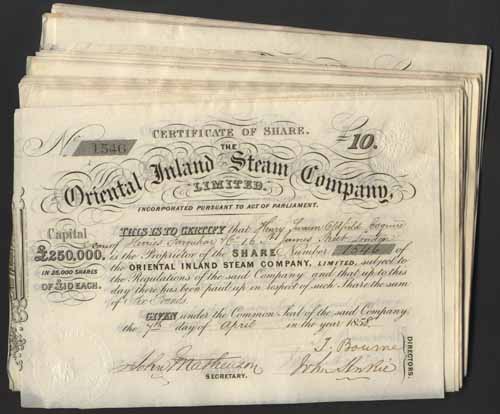 CERTIFICATE OF SHARE.
No 1546
£10.
THE
Oriental Inland Steam Company,
LIMITED.
INCORPORATED PURSUANT TO ACT OF PARLIAMENT.
Capital
£250,000.
IN 25,000 SHARES
OF £10 EACH.
THIS IS TO CERTIFY that Henry Swain Oldfield Esquire
care of Henries Farquhar & Co 16 St James Street London
is the Proprietor of the SHARE Number 1546 of
the ORIENTAL INLAND STEAM COMPANY, LIMITED, subject to
the Regulations of the said Company and that up to this
day there has been paid up in respect of such Share the sum
of Pounds.
GIVEN under the Common Seal of the said Company
the 7th day of April in the year 1858.
John Matheson
SECRETARY.
J. Bourne
John
DIRECTORS.